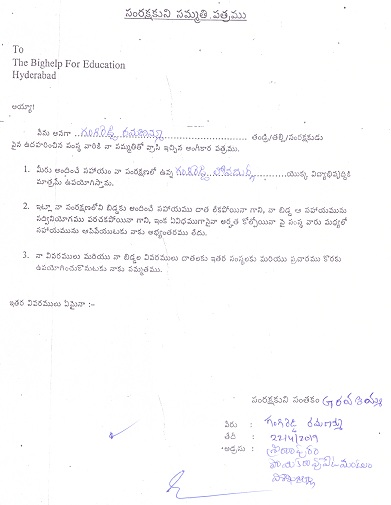 సంరక్షకుని సమ్మతి పత్రము
To
The Bighelp For Education
Hyderabad
అయ్యా!
నేను అనగా గంగిరెడ్డి రమణమ్మ తండ్రి/తల్లి/సంరక్షకుడు
పైన ఉదహరించిన సంస్థ వారికి నా సమ్మతితో వ్రాసి ఇచ్చిన అంగీకార పత్రము.
1. మీరు అందించే సహాయం నా సంరక్షణలో ఉన్న గంగిరెడ్డి యొక్క విద్యాభివృద్ధికి
మాత్రమే ఉపయోగిస్తాను.
2. ఇట్లా నా సంరక్షణలోని బిడ్డకు అందించే సహాయము దాత లేకపోయినా గాని, నా బిడ్డ ఆ సహాయమును
సద్వినియోగము పరచకపోయినా గాని, ఇంక ఏవిధముగానైనా అర్హత కోల్పోయినా పై సంస్థ వారు మధ్యలో
సహాయమును ఆపివేయుటకు నాకు అభ్యంతరము లేదు.
3. నా వివరములు మరియు నా బిడ్డల వివరములు దాతలకు ఇతర సంస్థలకు మరియు ప్రచారము కొరకు
ఉపయోగించుకొనుటకు నాకు సమ్మతము.
ఇతర వివరములు ఏమైనా :-
సంరక్షకుని సంతకం
పేరు : గంగిరెడ్డి రమణమ్మ
తేదీ : 22/4/2019
అడ్రసు :